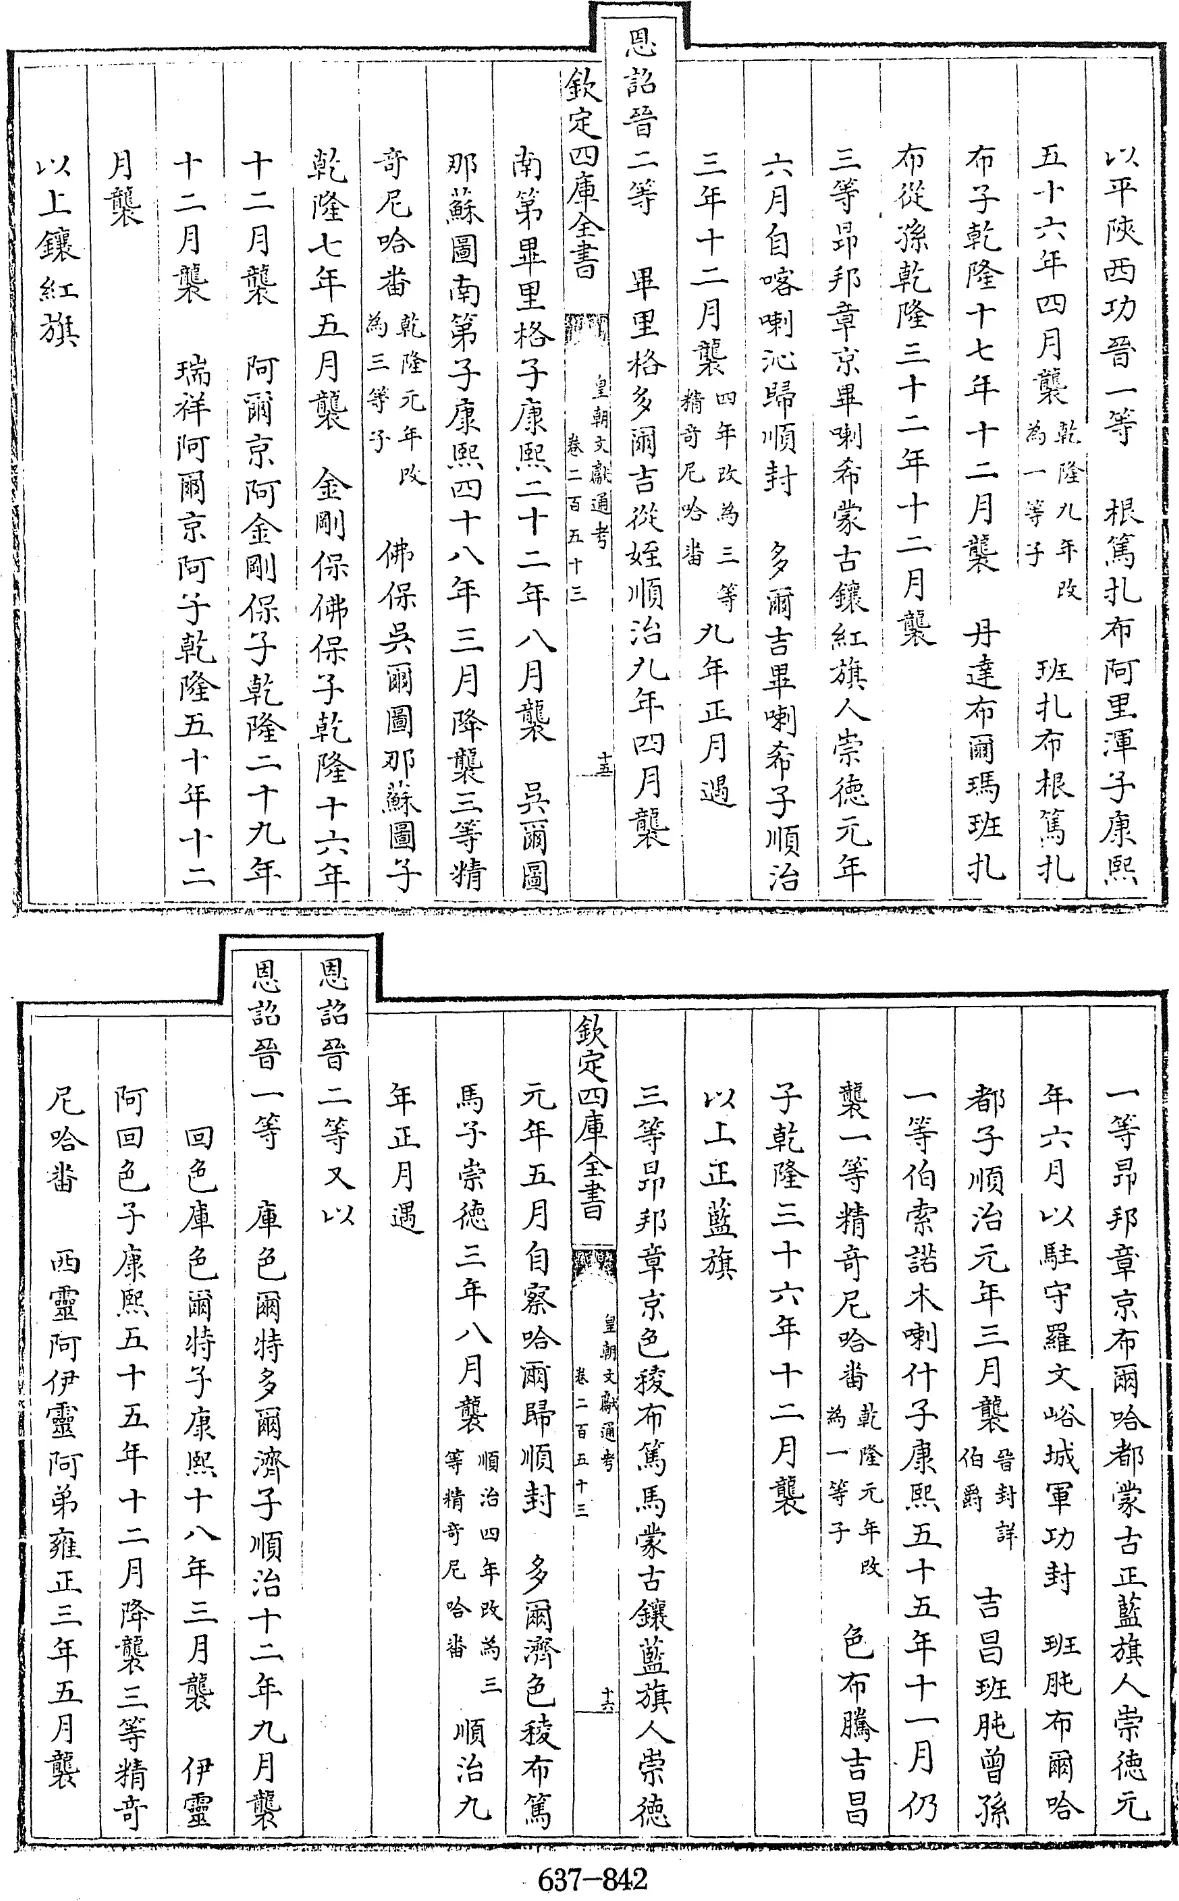 以平陜西功晉一等　根篤扎布阿里渾子康熙
五十六年四月襲乾隆九年改為一等子　班扎布根篤扎
布子乾隆十七年十二月襲　丹達布爾瑪班扎
布從孫乾隆三十二年十二月襲
三等昂邦章京畢喇希蒙古鑲紅旗人崇德元年
六月自喀喇沁歸順封　多爾吉畢喇希子順治
三年十二月襲四年改為三等精奇尼哈番　九年正月遇
恩詔晉二等　畢里格多爾吉從姪順治九年四月襲
欽定四庫全書　皇朝文獻通考卷二百五十三　十五
南第畢里格子康熙二十二年八月襲　吳爾圖
那蘇圖南第子康熙四十八年三月降襲三等精
奇尼哈番乾隆元年改為三等子　佛保吳爾圖那蘇圖子
乾隆七年五月襲　金剛保佛保子乾隆十六年
十二月襲　阿爾京阿金剛保子乾隆二十九年
十二月襲　瑞祥阿爾京阿子乾隆五十年十二
月襲
以上鑲紅旗
一等昂邦章京布爾哈都蒙古正藍旗人崇德元
年六月以駐守羅文峪城軍功封　班肫布爾哈
都子順治元年三月襲晉封詳伯爵　吉昌班肫曾孫
一等伯索諾木喇什子康熙五十五年十一月仍
襲一等精奇尼哈番乾隆元年改為一等子　色布騰吉昌
子乾隆三十六年十二月襲
以上正藍旗
三等昂邦章京色稜布篤馬蒙古鑲藍旗人崇德
欽定四庫全書　皇朝文獻通考卷二百五十三　十六
元年五月自察哈爾歸順封　多爾濟色稜布篤
馬子崇德三年八月襲順治四年改為三等精奇尼哈番　順治九
年正月遇
恩詔晉二等又以
恩詔晉一等　庫色爾特多爾濟子順治十二年九月襲
回色庫色爾特子康熙十八年三月襲　伊靈
阿回色子康熙五十五年十二月降襲三等精奇
尼哈番　西靈阿伊靈阿弟雍正三年五月襲
637-842